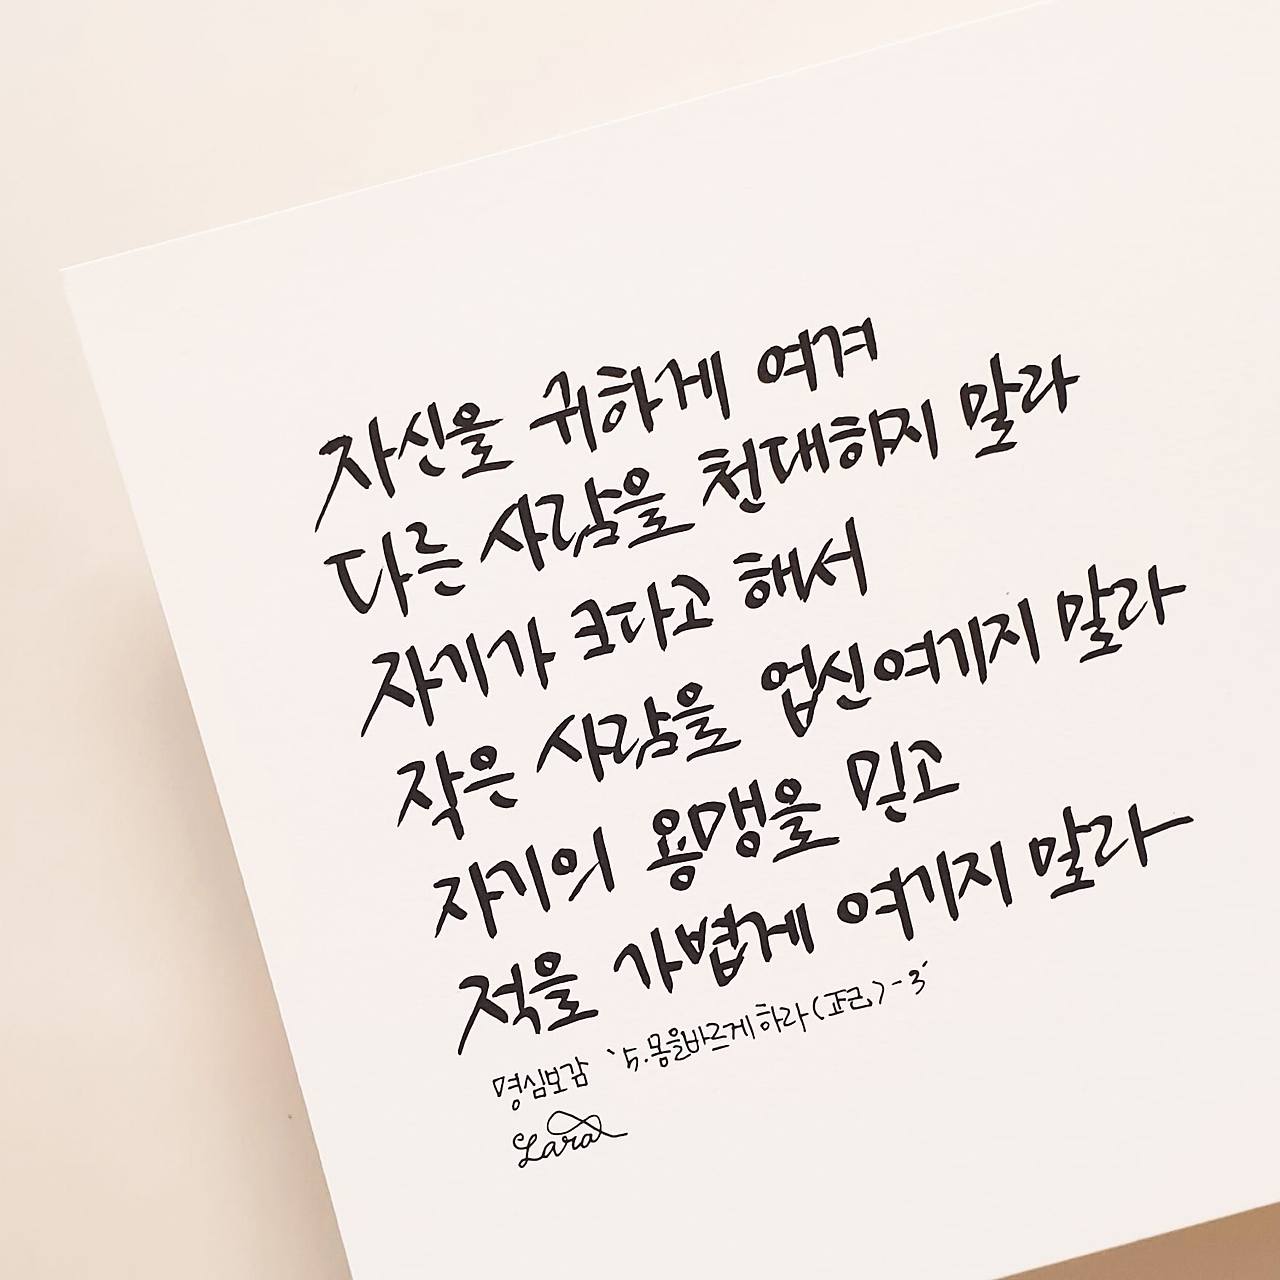 자신을 귀하게 여겨
다른 사람을 천대하지 말라
자기가 크다고 해서
작은 사람을 업신여기지 말라
자기의 용맹을 믿고
적을 가볍게 여기지 말라
명심보감 '5.몸을바르게하라(正己)-3'
Lara